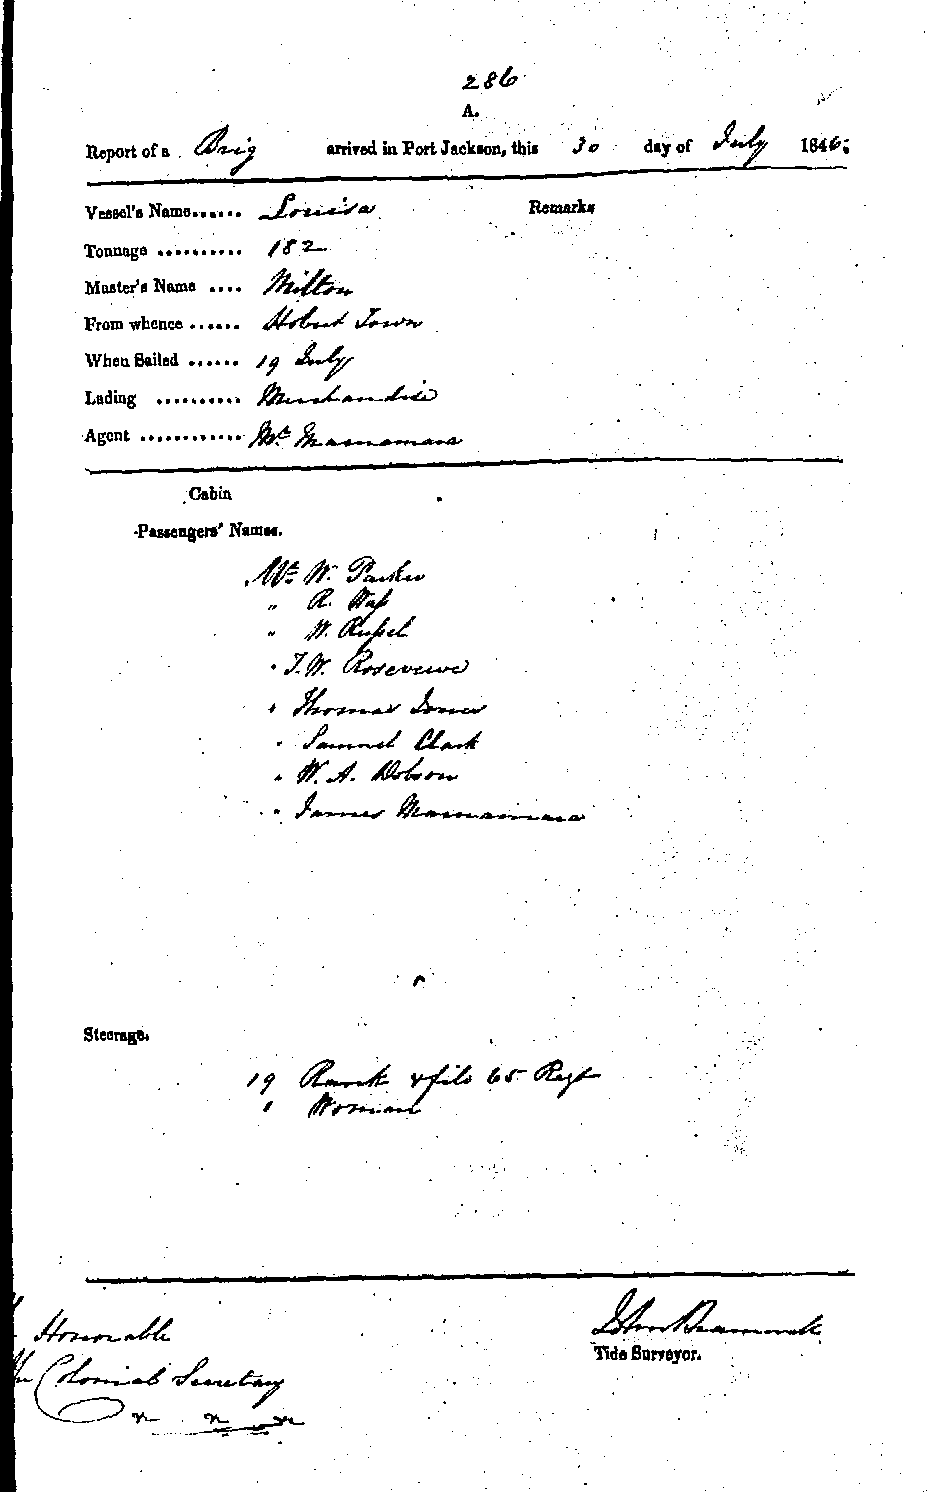 286
A.
Report of a Brig arrived in Port Jackson, this 30 day of July 1846;
Vessel's Name...... Louisa Remarks
Tonnage .......... 182
Master's Name .... Milton
From whence ...... Hobart Town
When Sailed ...... 19 July
Lading .......... Merchandise
Agent ............ Mr. Macnamara
Cabin
Passengers' Names.
Mr. W. Parker
" R.
" W. Russel
" J. W. Rosevewe
" Thomas Jones
" Samuel Clark
" W. A. Dobson
" James Macnamara
Steerage.
19 Rank & file 65 Regt
1 Woman
Honorable
Colonial Secretary
John
Tide Surveyor.